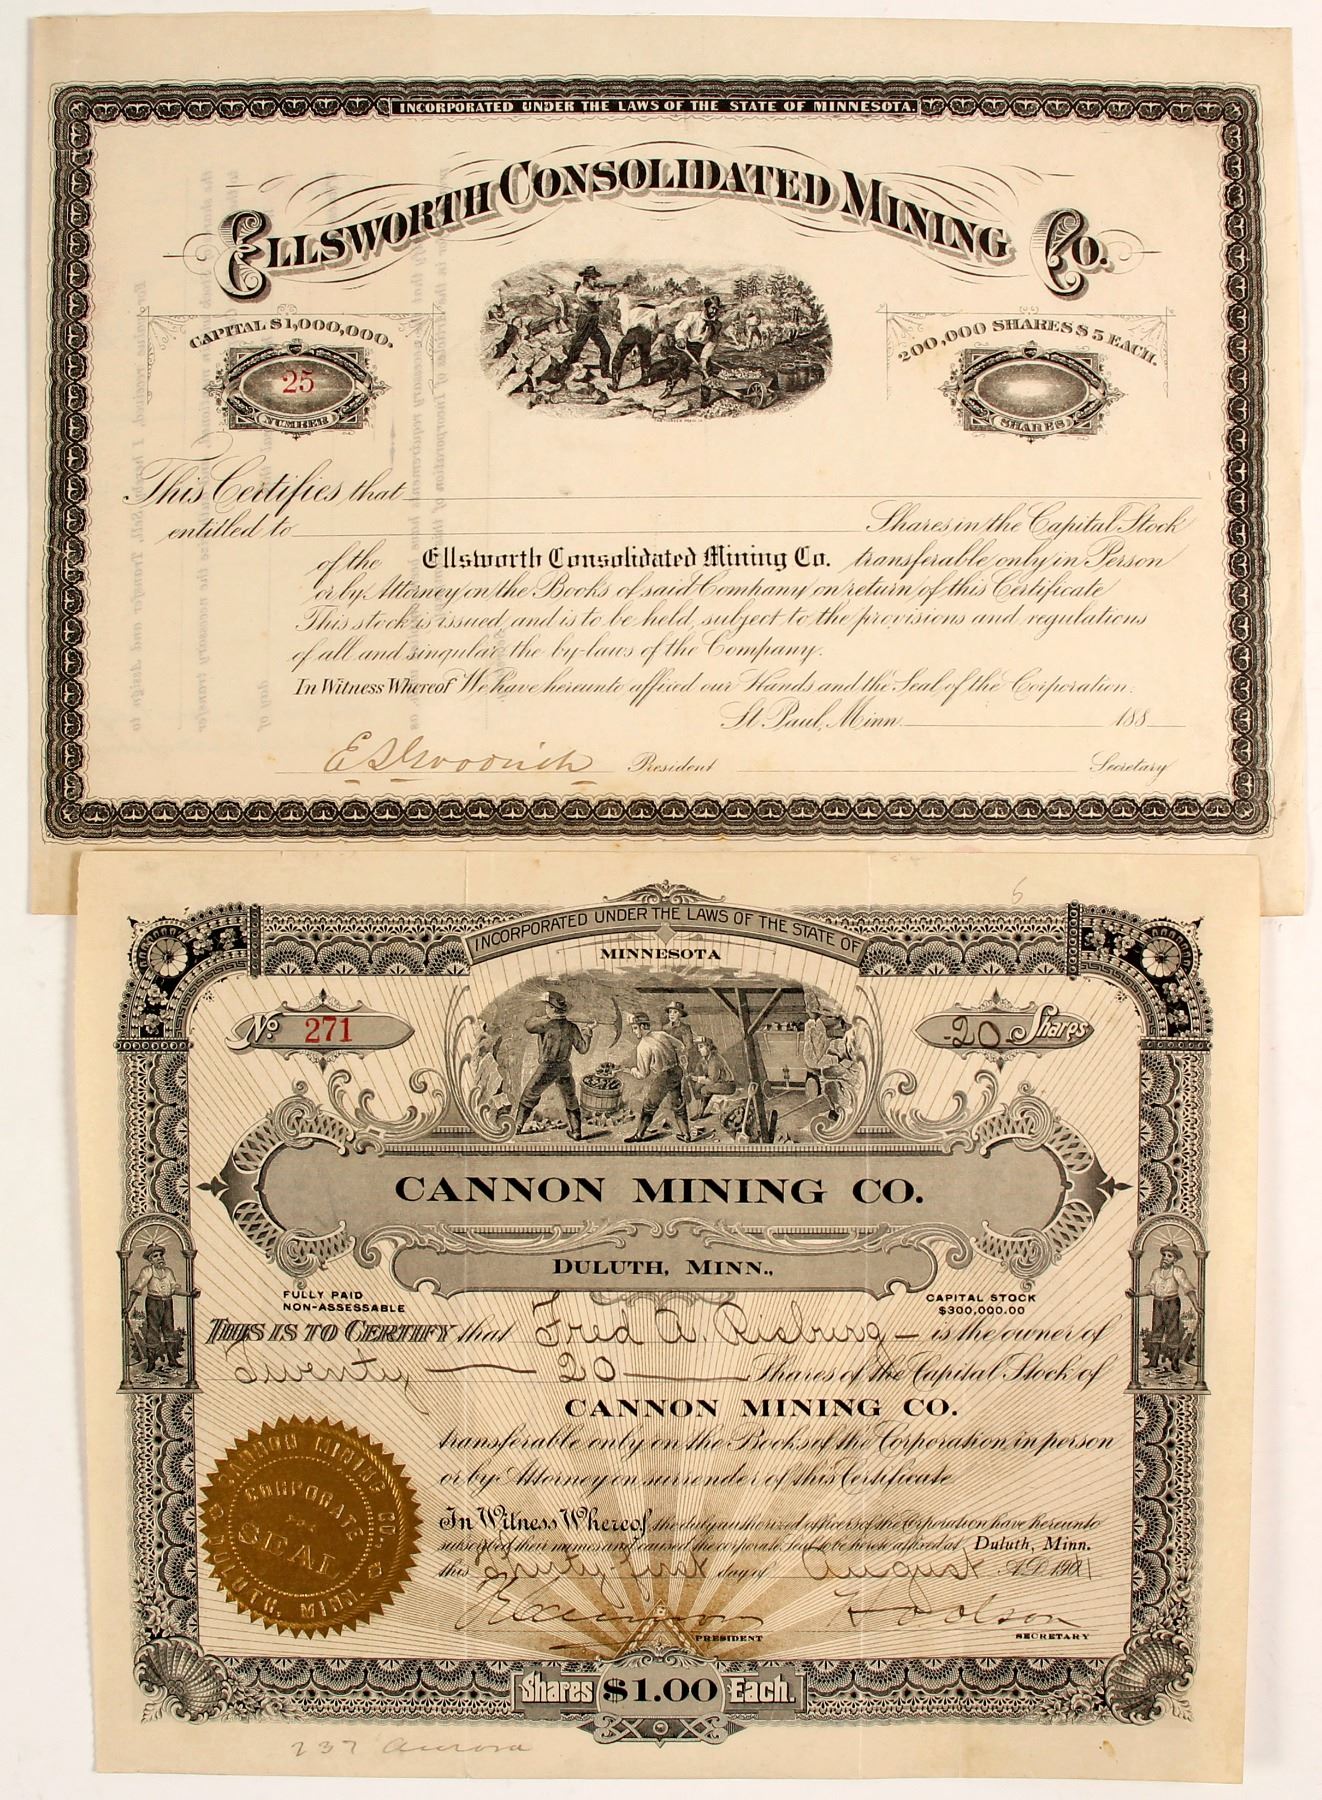 INCORPORATED UNDER THE LAWS OF THE STATE OF MINNESOTA.
ELLSWORTH CONSOLIDATED MINING CO.
CAPITAL $1,000,000.
200,000 SHARES $5 EACH.
25
NUMBER
SHARES
This Certifies that
entitled to Shares in the Capital Stock
of the Ellsworth Consolidated Mining Co. transferable only in Person
or by Attorney on the Books of said Company on return of this Certificate
This stock is issued, and is to be held, subject to the provisions and regulations
of all and singular the by-laws of the Company.
In Witness Whereof We have hereunto affixed our Hands and the Seal of the Corporation.
St Paul, Minn. 188
E S Goodrich President Secretary
6
INCORPORATED UNDER THE LAWS OF THE STATE OF
MINNESOTA
No. 271
-20- Shares
CANNON MINING CO.
DULUTH, MINN.,
FULLY PAID
NON-ASSESSABLE
CAPITAL STOCK
$300,000.00
THIS IS TO CERTIFY that Fred A. Risburg - is the owner of
Twenty 20 Shares of the Capital Stock of
CANNON MINING CO.
transferable only on the Books of the Corporation, in person
or by Attorney on surrender of this Certificate
In Witness Whereof, the duly authorized officers of the Corporation have hereunto
subscribed their names and caused the corporate Seal to be hereto affixed at Duluth, Minn.
this Thirty-first day of August A.D. 1901
Olson
PRESIDENT
SECRETARY
CANNON MINING CO.
CORPORATE
SEAL
DULUTH, MINN.
Shares $1.00 Each.
237 Aurora